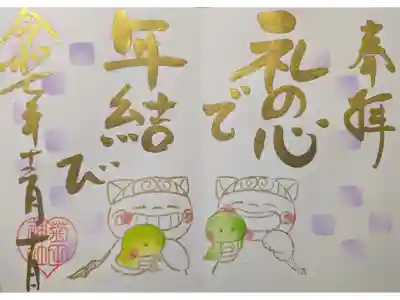 奉拝
礼の心で
年結び
令和七年十二月一日